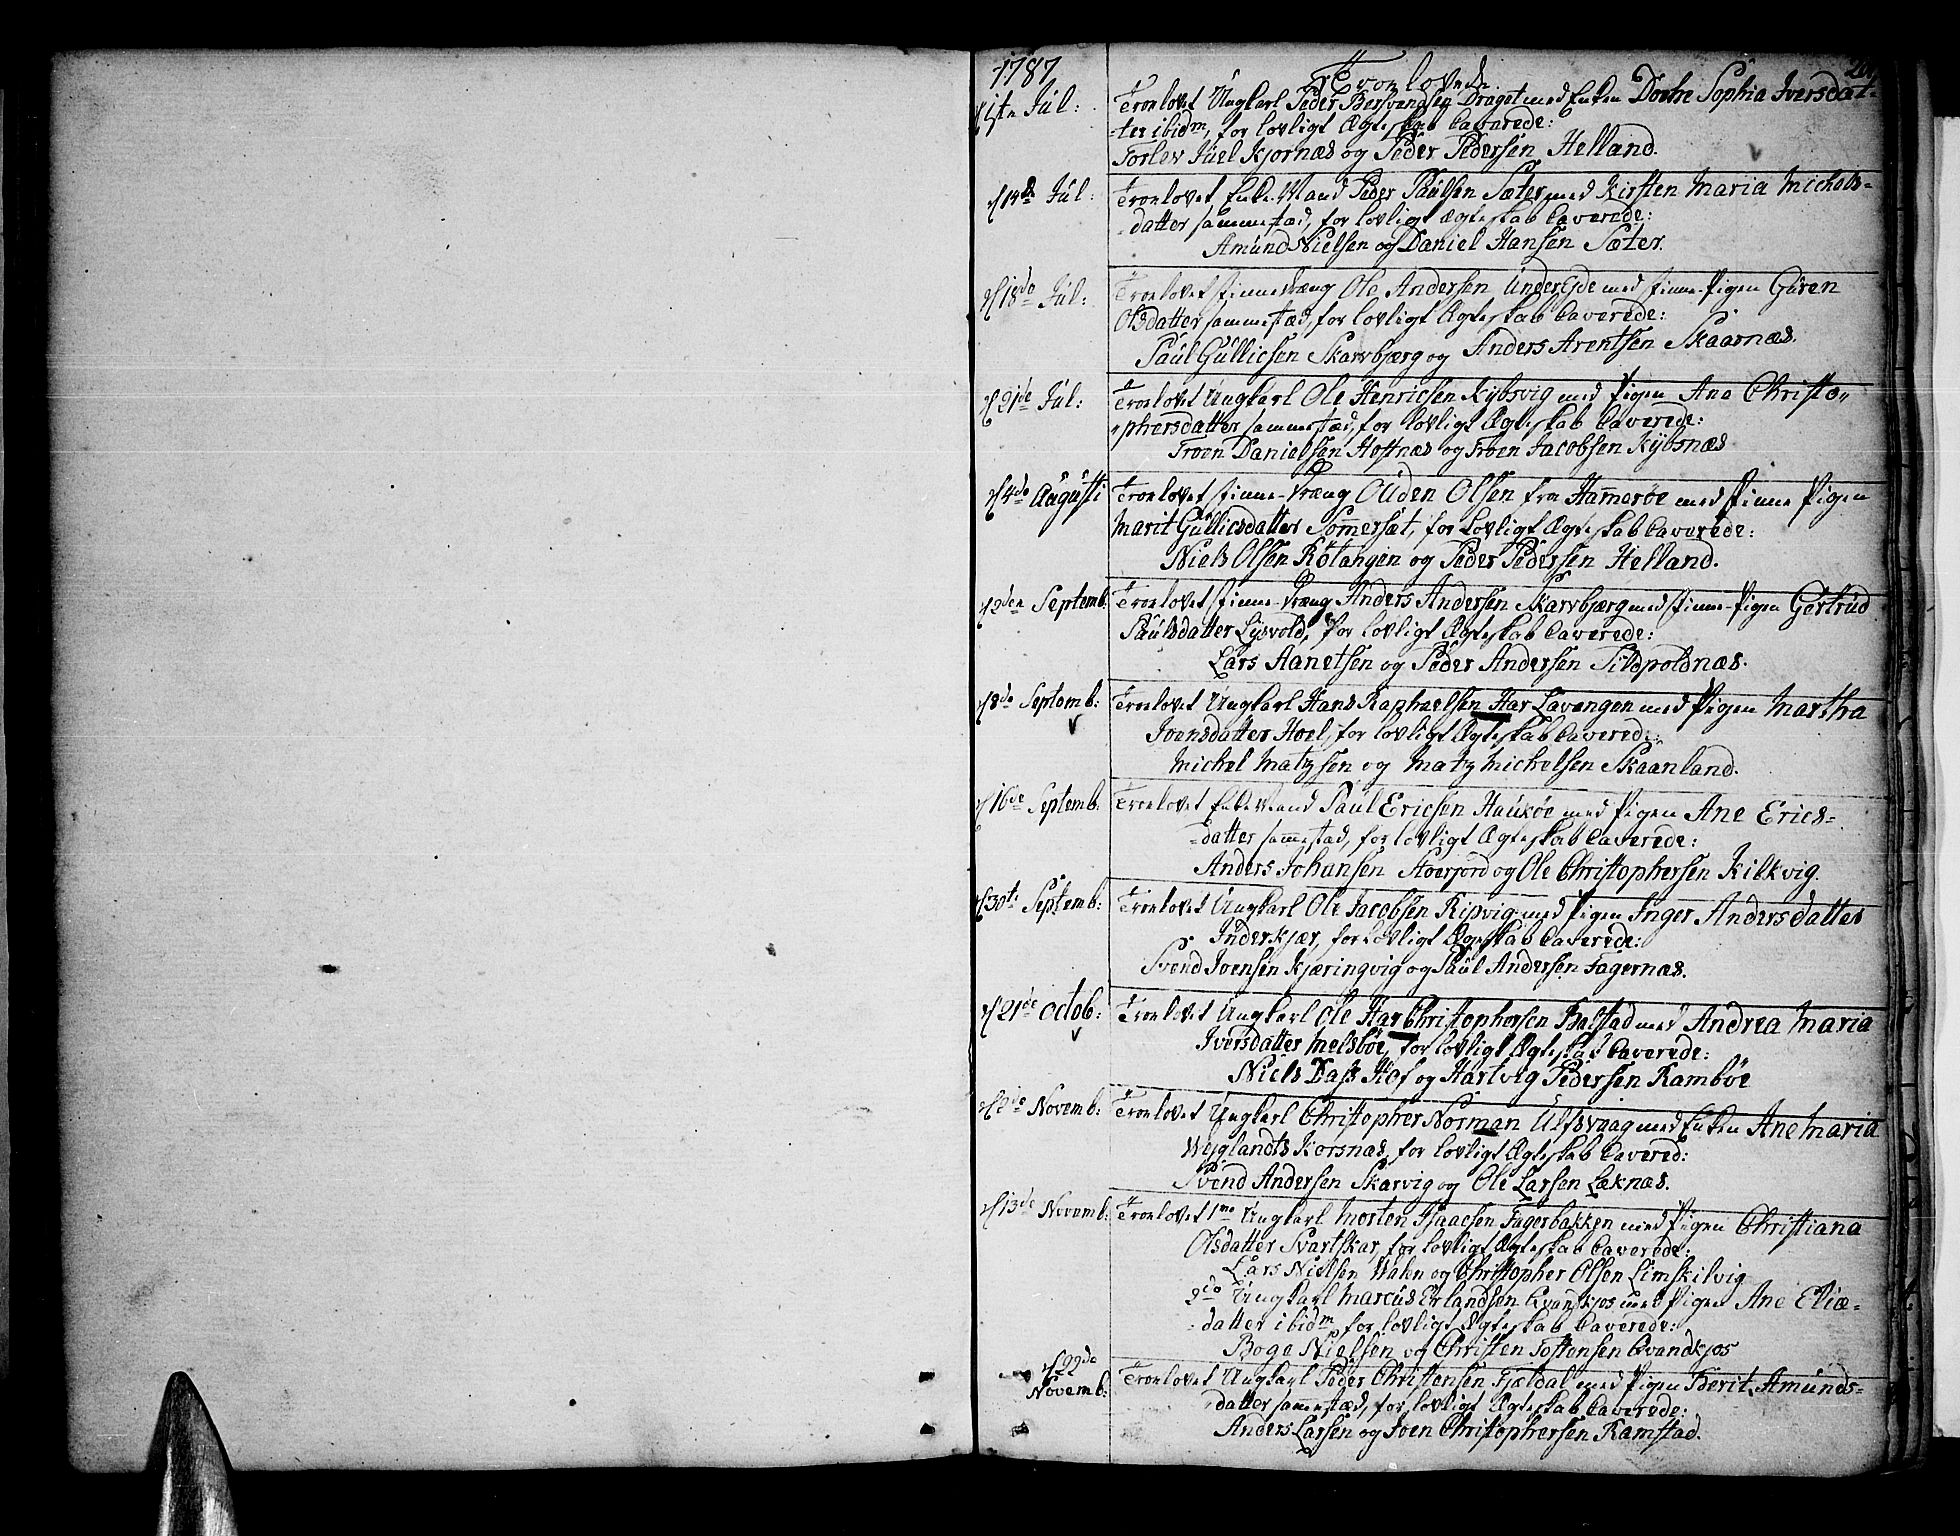 1787
Troelovede
1ste Jul: Troelovet Ungkarl Peder Bersvendsen Draget med Enken Dorhe Sophia Iversdat-
ter ibidm, for lovligt Ægteskab Caverede:
Torlev Juel Kjørnæs og Peder Pedersen Helland.
d 14de Jul: Troelovet Enke-Mand Peder Paulsen Sæter med Kirsten Maria Michels-
datter sammestæd, for lovligt Ægteskab Caverede:
Amund Nielsen og Daniel Hansen Sæter.
d 18de Jul: Troelovet finne-dræng Ole Andersen UnderEjde med finne-Pigen Guren
Olsdatter sammestæd, for lovligt Ægteskab Caverede:
Paul Gullicsen Skarvbjærg og Anders Arentsen Skaarnæs.
d 21de Jul: Troelovet Ungkarl Ole Henricsen Kybsvig med Pigen Ane Christo-
phersdatter sammestæd, for lovligt Ægteskab Caverede:
Troen Danielsen Hofnæs og Troen Jacobsen Kybsnæs
d 4de Augusti Troelovet finne-dræng Ouden Olsen fra Hammerøe med finne Pigen
Marit Gullicsdatter Sømersæt, for Lovligt Ægteskab Caverede:
Niels Olsen Rotangen og Peder Pedersen Helland.
d 2den Septemb: Troelovet finne-dræng Anders Andersen Skarvbjærg med finne-Pigen Gertrud
Paulsdatter Lysvold, for lovligt Ægteskab Caverede:
Lars Aanetsen og Peder Andersen Sildpoldnæs.
d 8de Septemb: Troelovet Ungkarl Hans Raphaelsen Har Lavangen med Pigen Martha
Joensdatter Hoel, for lovligt Ægteskab Caverede:
Michel Matzsen og Matz Michelsen Skaanland.
d 16de Septemb: Troelovet EnkeMand Paul Ericsen Haukøe med Pigen Ane Erics-
datter sammestad, for lovligt Ægteskab Caverede:
Anders Johansen Hoerjord og Ole Christophersen Kilkvig.
d 30te Septemb: Troelovet Ungkarl Ole Jacobsen Ripvig med Pigen Inger Andersdatter
Inderkjær, for lovligt Ægteskab Caverede:
Svend Joensen Kjæringvig og Paul Andersen Fagernæs.
d 21de Octob: Troelovet Ungkarl Ole Har Christophersen Balstad med Andrea Maria
Iversdatter Melsbøe, for lovligt Ægteskab Caverede:
Niels Dass Hof og Hartvig Pedersen Rambøe
d 2de Novemb: Troelovet Ungkarl Christopher Norman Ulfsvaag med Enken Ane Maria
Wejglandts Korsnæs, for lovligt Ægteskab Cavered:
Svend Andersen Skarvig og Ole Larsen Læknæs.
d 13de Novemb: Troelovet 1mo Ungkarl Morten Isaacsen Fagerbakken med Pigen Christiana
Olsdatter Svartskar, for lovligt Ægteskab Caverede:
Lars Nielsen Walen og Christopher Olsen Limskilvig
2do Ungkarl Marcus Erlandsen Qvandkjos med Pigen Ane Eliæ-
datter ibidm, for lovligt Ægteskab Caverede:
Boge Nielsen og Christen Tostensen Qvandkjos
d 22de
Novemb: Troelovet Ungkarl Peder Christensen Fjældal med Pigen Berit Amunds-
datter sammestæd, for lovligt Ægteskab Caverede:
Anders Larsen og Joen Christophersen Ramstad.